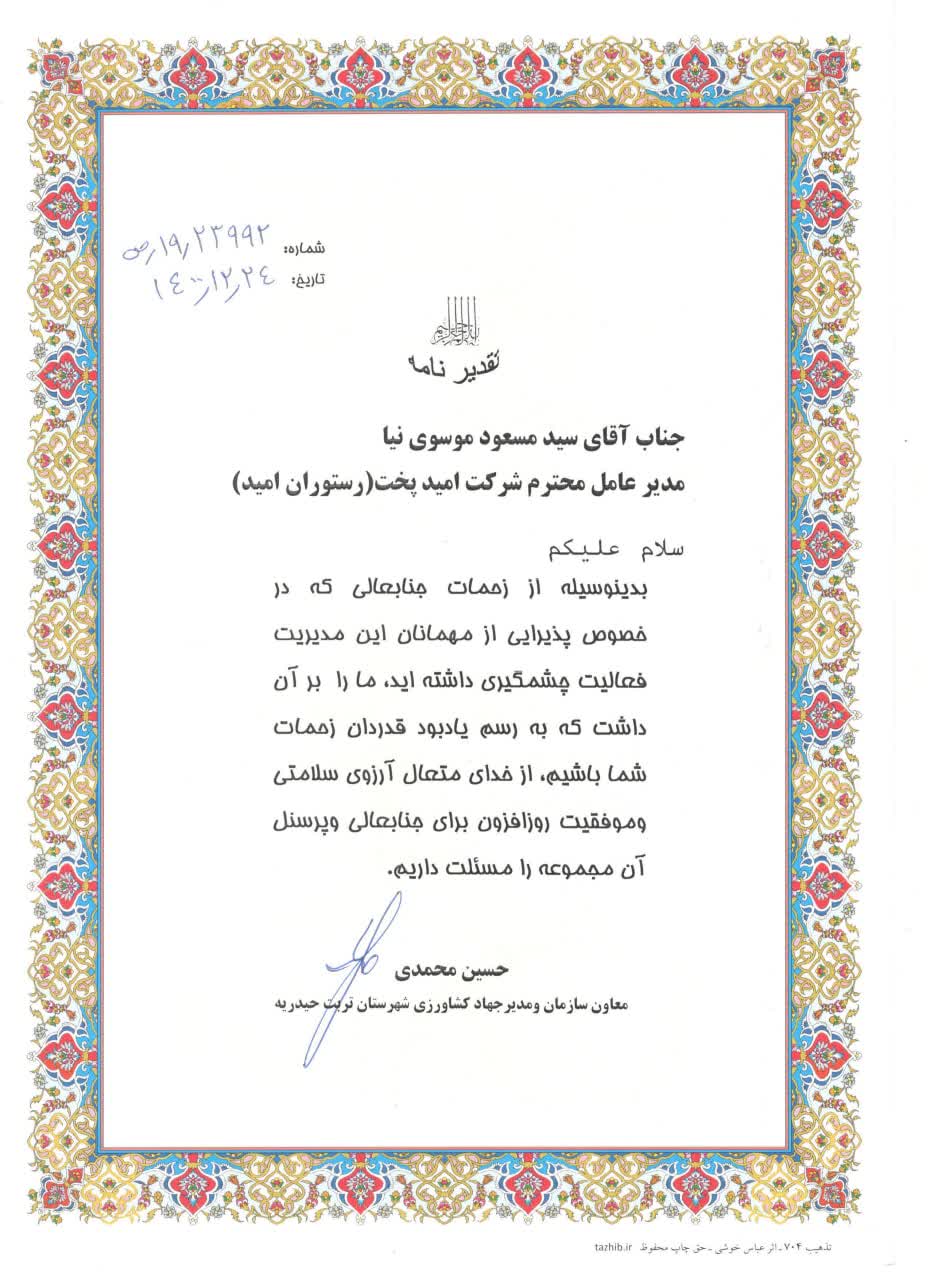 شماره: ۱۹٫۲۳۹۹۲٫ص
تاریخ: ۱۴۰۰٫۱۲٫۲۴
بسم الله الرحمن الرحیم
تقدیر نامه
جناب آقای سید مسعود موسوی نیا
مدیر عامل محترم شرکت امید پخت(رستوران امید)
سلام علیکم
بدینوسیله از زحمات جنابعالی که در
خصوص پذیرایی از مهمانان این مدیریت
فعالیت چشمگیری داشته اید، ما را بر آن
داشت که به رسم یادبود قدردان زحمات
شما باشیم، از خدای متعال آرزوی سلامتی
وموفقیت روزافزون برای جنابعالی وپرسنل
آن مجموعه را مسئلت داریم.
حسین محمدی
معاون سازمان ومدیرجهاد کشاورزی شهرستان تربت حیدریه
تذهیب ۷۰۴ ـ اثر عباس خوشی ـ حق چاپ محفوظ tazhib.ir